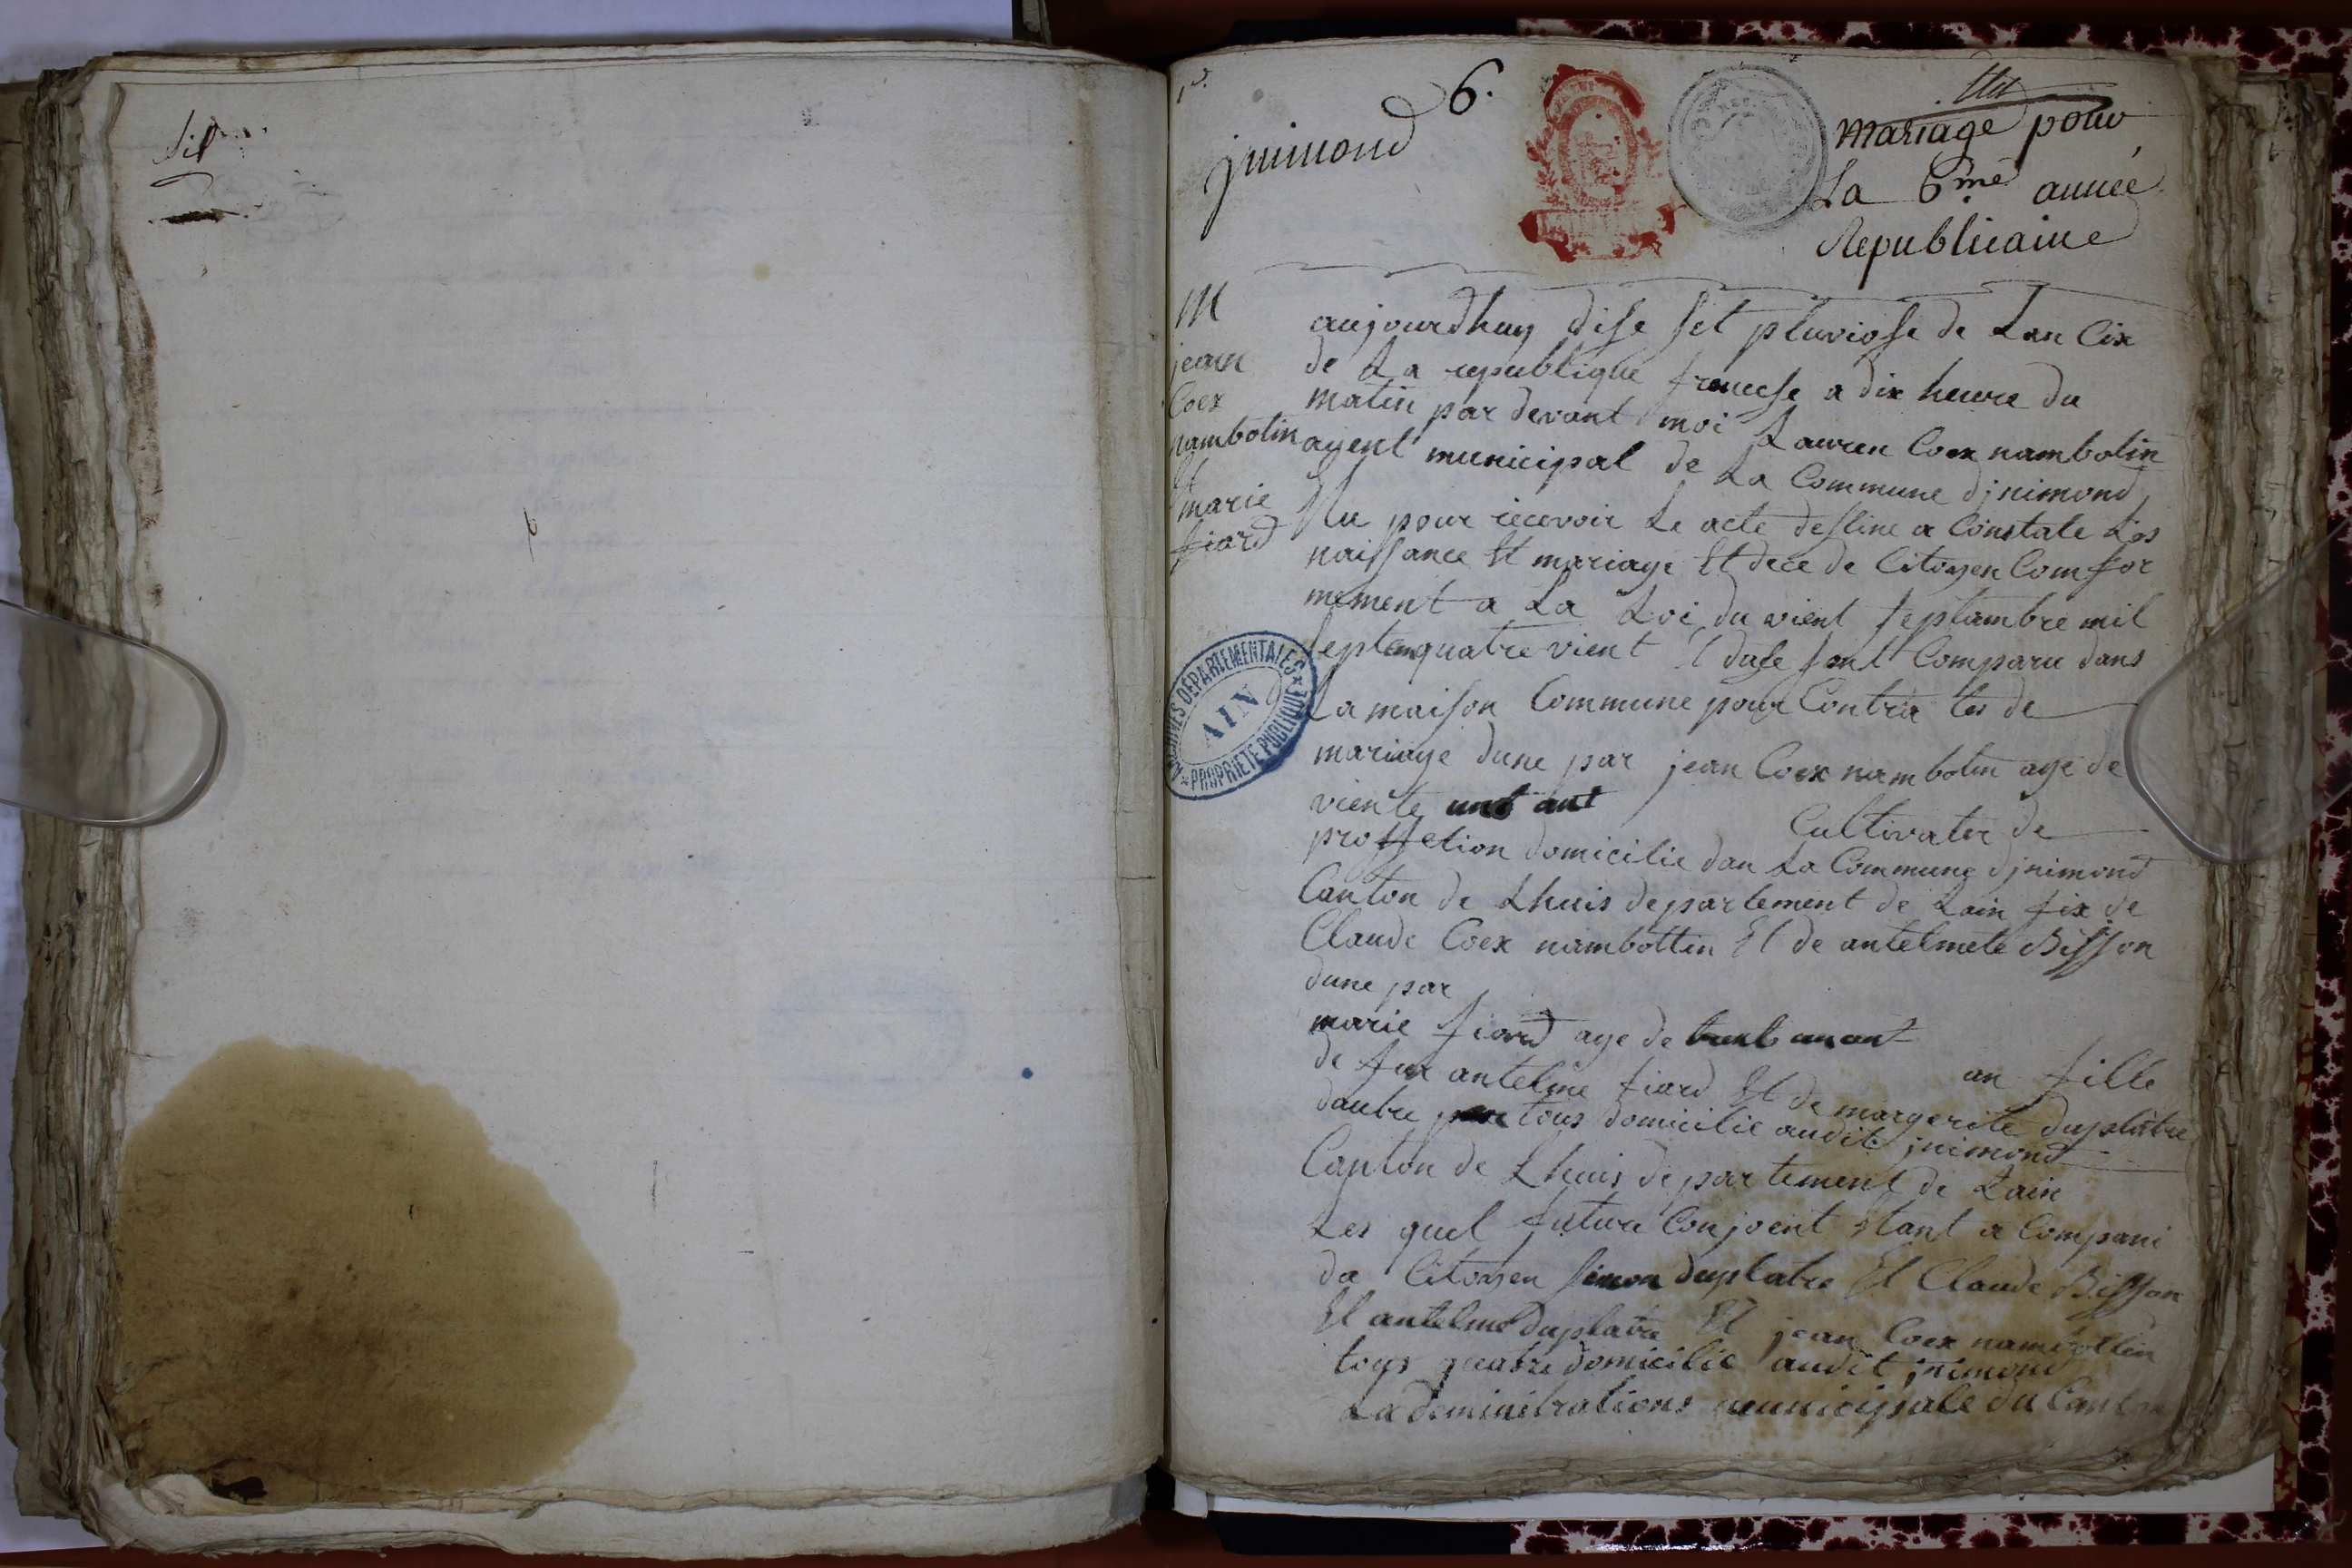 6.
jnimond
mariage pour
La 6me année
Republicaine
M
jean
Coex
nambotin
Et
marie
fiard
aujourdhuy dise set pluviose de Lan Cix
de La republique francse a dix heure du
matin par devant moi Lauren Coex nambotin
agent municipal de La Commune djnimond
Elu pour recevoir Le acte destine a Constate Les
naissance Et mariage Et dece de Citoyen Comfor
mement a La Loi du vient septambre mil
septem quatre vient Et duse sont Comparu dans
La maison Commune pour Contra ter de
mariage dune par jean Coex nambotin age de
viente
Cultivater de
proffetion domicilie dan La Commune djnimond
Canton de Lhuis departement de Lain fix de
Claude Coex nambotten Et de antelmete Bisson
dune par
marie fiard age de
an fille
de fux antelme fiard Et de margerite duplâtre
dautre par tous domicilie audit jnimond
Canton de Lhuis departement de Lain
Les quel futura Conjoent stant a Compani
da Citoyen simon duplatre Et Claude Bisson
Et antelme duplatre Et jean Coex nambottin
tous quatre domicilie audit jnimond
Lademinitrations municipale du Cant
ARCHIVES DEPARTEMENTALES
AIN
PROPRIETE PUBLIQUE